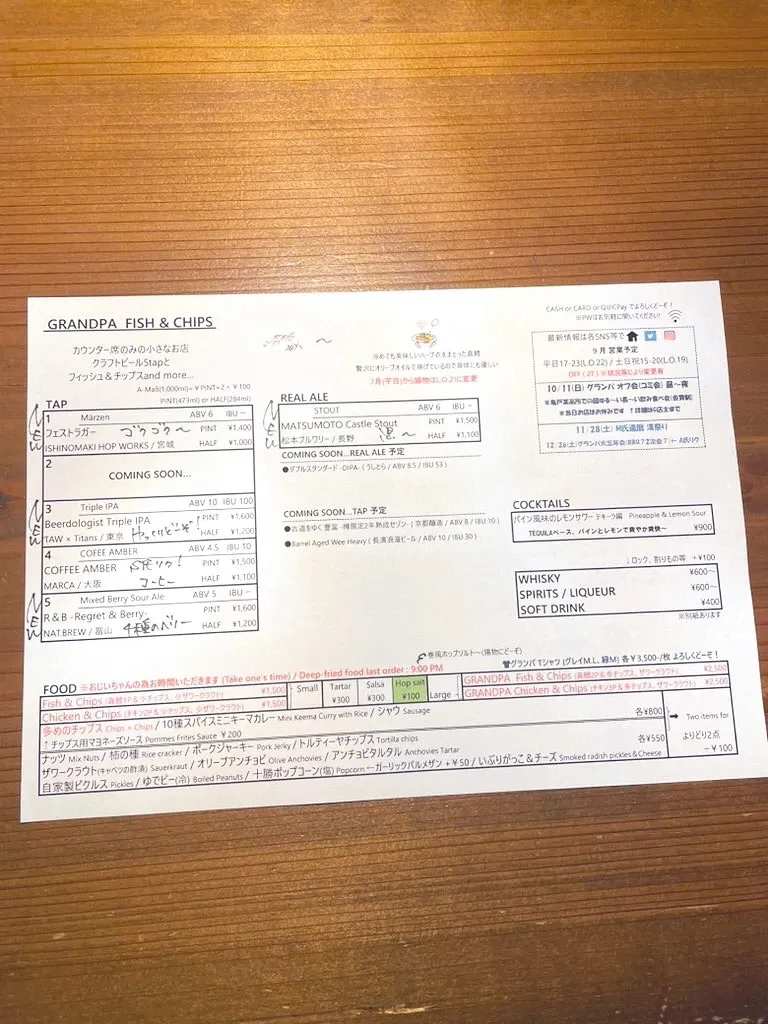 GRANDPA FISH & CHIPS
カウンター席のみの小さなお店
クラフトビール5tapと
フィッシュ＆チップスand more...
A-Ma5(1,000m)= ¥PINT×2 - ¥100
PINT(473ml) or HALF(284ml)
冷めても美味しいハーブ衣をまとった真鱈
贅沢にオリーブオイルで揚げているので身体にも優しい
7月(平日)から揚物はL.O.21に変更
CASH or CARD or QUICPay でよろしくどーぞ！
※PWはお気軽に聞いてください!
最新情報は各SNS等で
9月 営業予定
平日17-23(LO.22) / 土日祝15-20(LO.19)
OFF ( 27 ) ※状況等により変更有
10/11(日) グランパ オフ会(コミ会) 昼～夜
11/28(土) H氏還暦 濱祭り
TAP
NEW
1 Märzen ABV 6 IBU -
フェストラガー ゴクゴク～ PINT ¥1,400
ISHINOMAKI HOP WORKS / 宮城 HALF ¥1,000
2
COMING SOON...
NEW
3 Triple IPA ABV 10 IBU 100
Beerdologist Triple IPA PINT ¥1,600
TAW × Titans / 東京 HALF ¥1,200
4 COFEE AMBER ABV 4.5 IBU 10
COFFEE AMBER PINT ¥1,500
MARCA / 大阪 コーヒー HALF ¥1,100
NEW
5 Mixed Berry Sour Ale ABV 5 IBU -
R&B -Regret & Berry- PINT ¥1,600
NAT.BREW / 富山 4種のベリー HALF ¥1,200
REAL ALE
STOUT ABV 6 IBU -
MATSUMOTO Castle Stout PINT ¥1,500
松本ブルワリー / 長野 黒～ HALF ¥1,100
COMING SOON...REAL ALE 予定
●ダブルスタンダード -DIPA- ( うしとら / ABV 8.5 / IBU 53 )
COMING SOON...TAP 予定
●古道をゆく 豊富 -樽限定2年熟成セゾン- ( 京都醸造 / ABV 8 / IBU 10 )
●Barrel Aged Wee Heavy ( 長濱浪漫ビール / ABV 10 / IBU 30 )
COCKTAILS
パイン風味のレモンサワー テキーラ編 Pineapple & Lemon Sour
TEQUILAベース、パインとレモンで爽やか爽快～ ¥900
↓ロック、割りもの等 +¥100
WHISKY ¥600～
SPIRITS / LIQUEUR ¥600～
SOFT DRINK ¥400
※別紙あります
巻風ホップソルト～(揚物にどーぞ)
グランパ Tシャツ (グレイM.L、緑M) 各¥3,500-/枚 よろしくどーぞ！
FOOD ※おじいちゃんの為お時間いただきます (Take one's time) / Deep-fried food last order : 9:00 PM
Fish & Chips (真鱈1P & 少チップス、少ザワークラウト) ¥1,500
Chicken & Chips (チキン2P & 少チップス、少ザワークラウト) ¥1,500
Small
Tartar ¥300
Salsa ¥300
Hop salt ¥100
Large
GRANDPA Fish & Chips (真鱈2P & 多チップス、ザワークラウト) ¥2,500
GRANDPA Chicken & Chips (チキン3P & 多チップス、ザワークラウト) ¥2,500
多めのチップス Chips × Chips / 10種スパイスミニキーマカレー Mini Keema Curry with Rice / シャウ Sausage 各¥800
↑チップス用マヨネーズソース Pommes Frites Sauce ¥200
ナッツ Mix Nuts / 柿の種 Rice cracker / ポークジャーキー Pork Jerky / トルティーヤチップス Tortilla chips 各¥550
ザワークラウト(キャベツの酢漬) Sauerkraut / オリーブアンチョビ Olive Anchovies / アンチョビタルタル Anchovies Tartar
自家製ピクルス Pickles / ゆでピー(冷) Boiled Peanuts / 十勝ポップコーン(塩) Popcorn ←ガーリックパルメザン +¥50 / いぶりがっこ＆チーズ Smoked radish pickles & Cheese
➡ Two items for
よりどり2点
－¥100